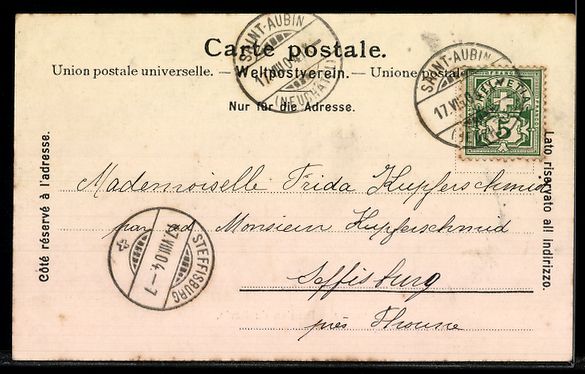 Carte postale.
Union postale universelle. — Weltpostverein. — Unione postale
Nur für die Adresse.
SAINT-AUBIN
(NEUCHATEL)
SAINT-AUBIN
HELVETIA
5
Côté réservé à l'adresse.
Lato riservato all indirizzo.
Mademoiselle Frida Kupferschmid
par ad. Monsieur Kupferschmud
Steffisburg
près Thoune
STEFFISBURG
17.VIII.04.–7